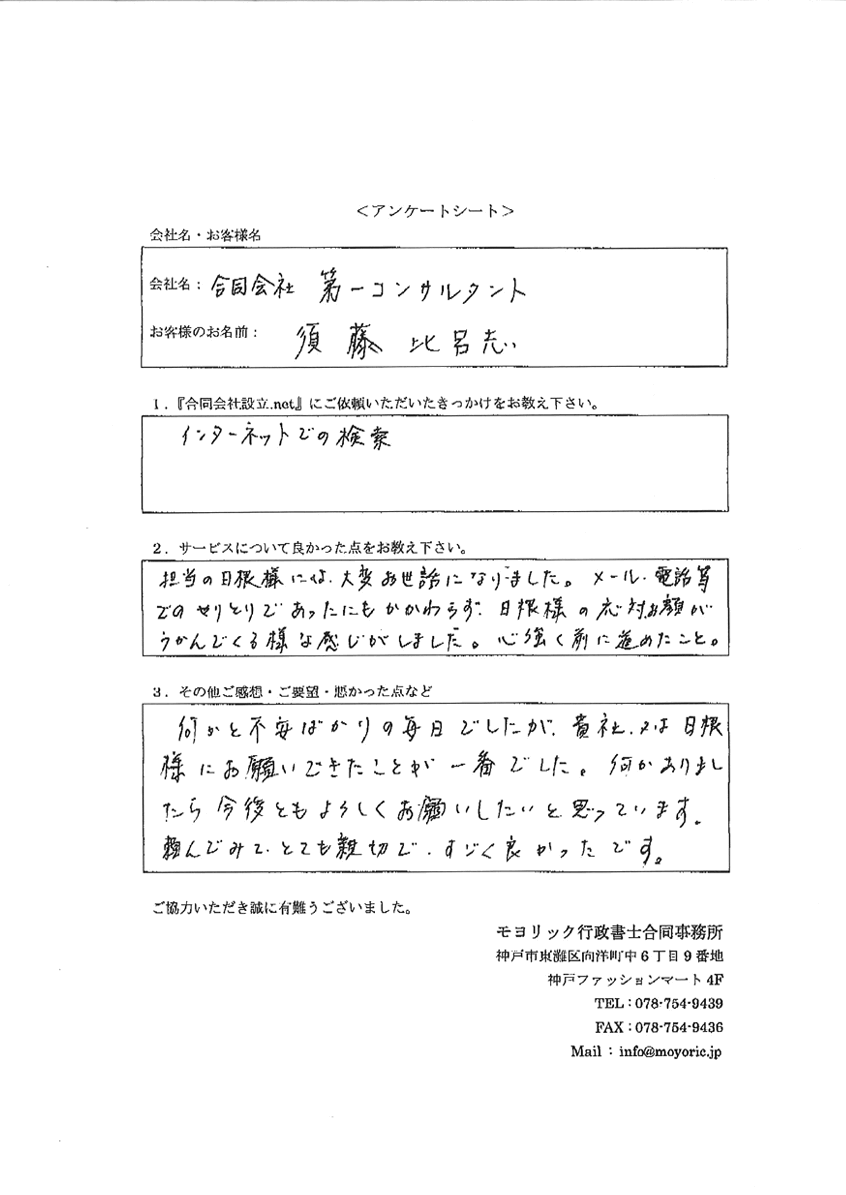 ＜アンケートシート＞
会社名・お客様名
会社名： 合同会社 第一コンサルタント
お客様のお名前： 須藤 比呂志
１．『合同会社設立.net』にご依頼いただいたきっかけをお教え下さい。
インターネットでの検索
２．サービスについて良かった点をお教え下さい。
担当の日根様には、大変お世話になりました。メール、電話等
でのやりとりであったにもかかわらず、日根様の応対お顔が
うかんでくる様な感じがしました。心強く前に進めたこと。
３．その他ご感想・ご要望・悪かった点など
何かと不安ばかりの毎日でしたが、貴社、又は日根
様にお願いできたことが一番でした。何かありまし
たら今後ともよろしくお願いしたいと思っています。
頼んでみて、とても親切で、すごく良かったです。
ご協力いただき誠に有難うございました。
モヨリック行政書士合同事務所
神戸市東灘区向洋町中６丁目９番地
神戸ファッションマート 4F
TEL：078-754-9439
FAX：078-754-9436
Mail： info@moyoric.jp